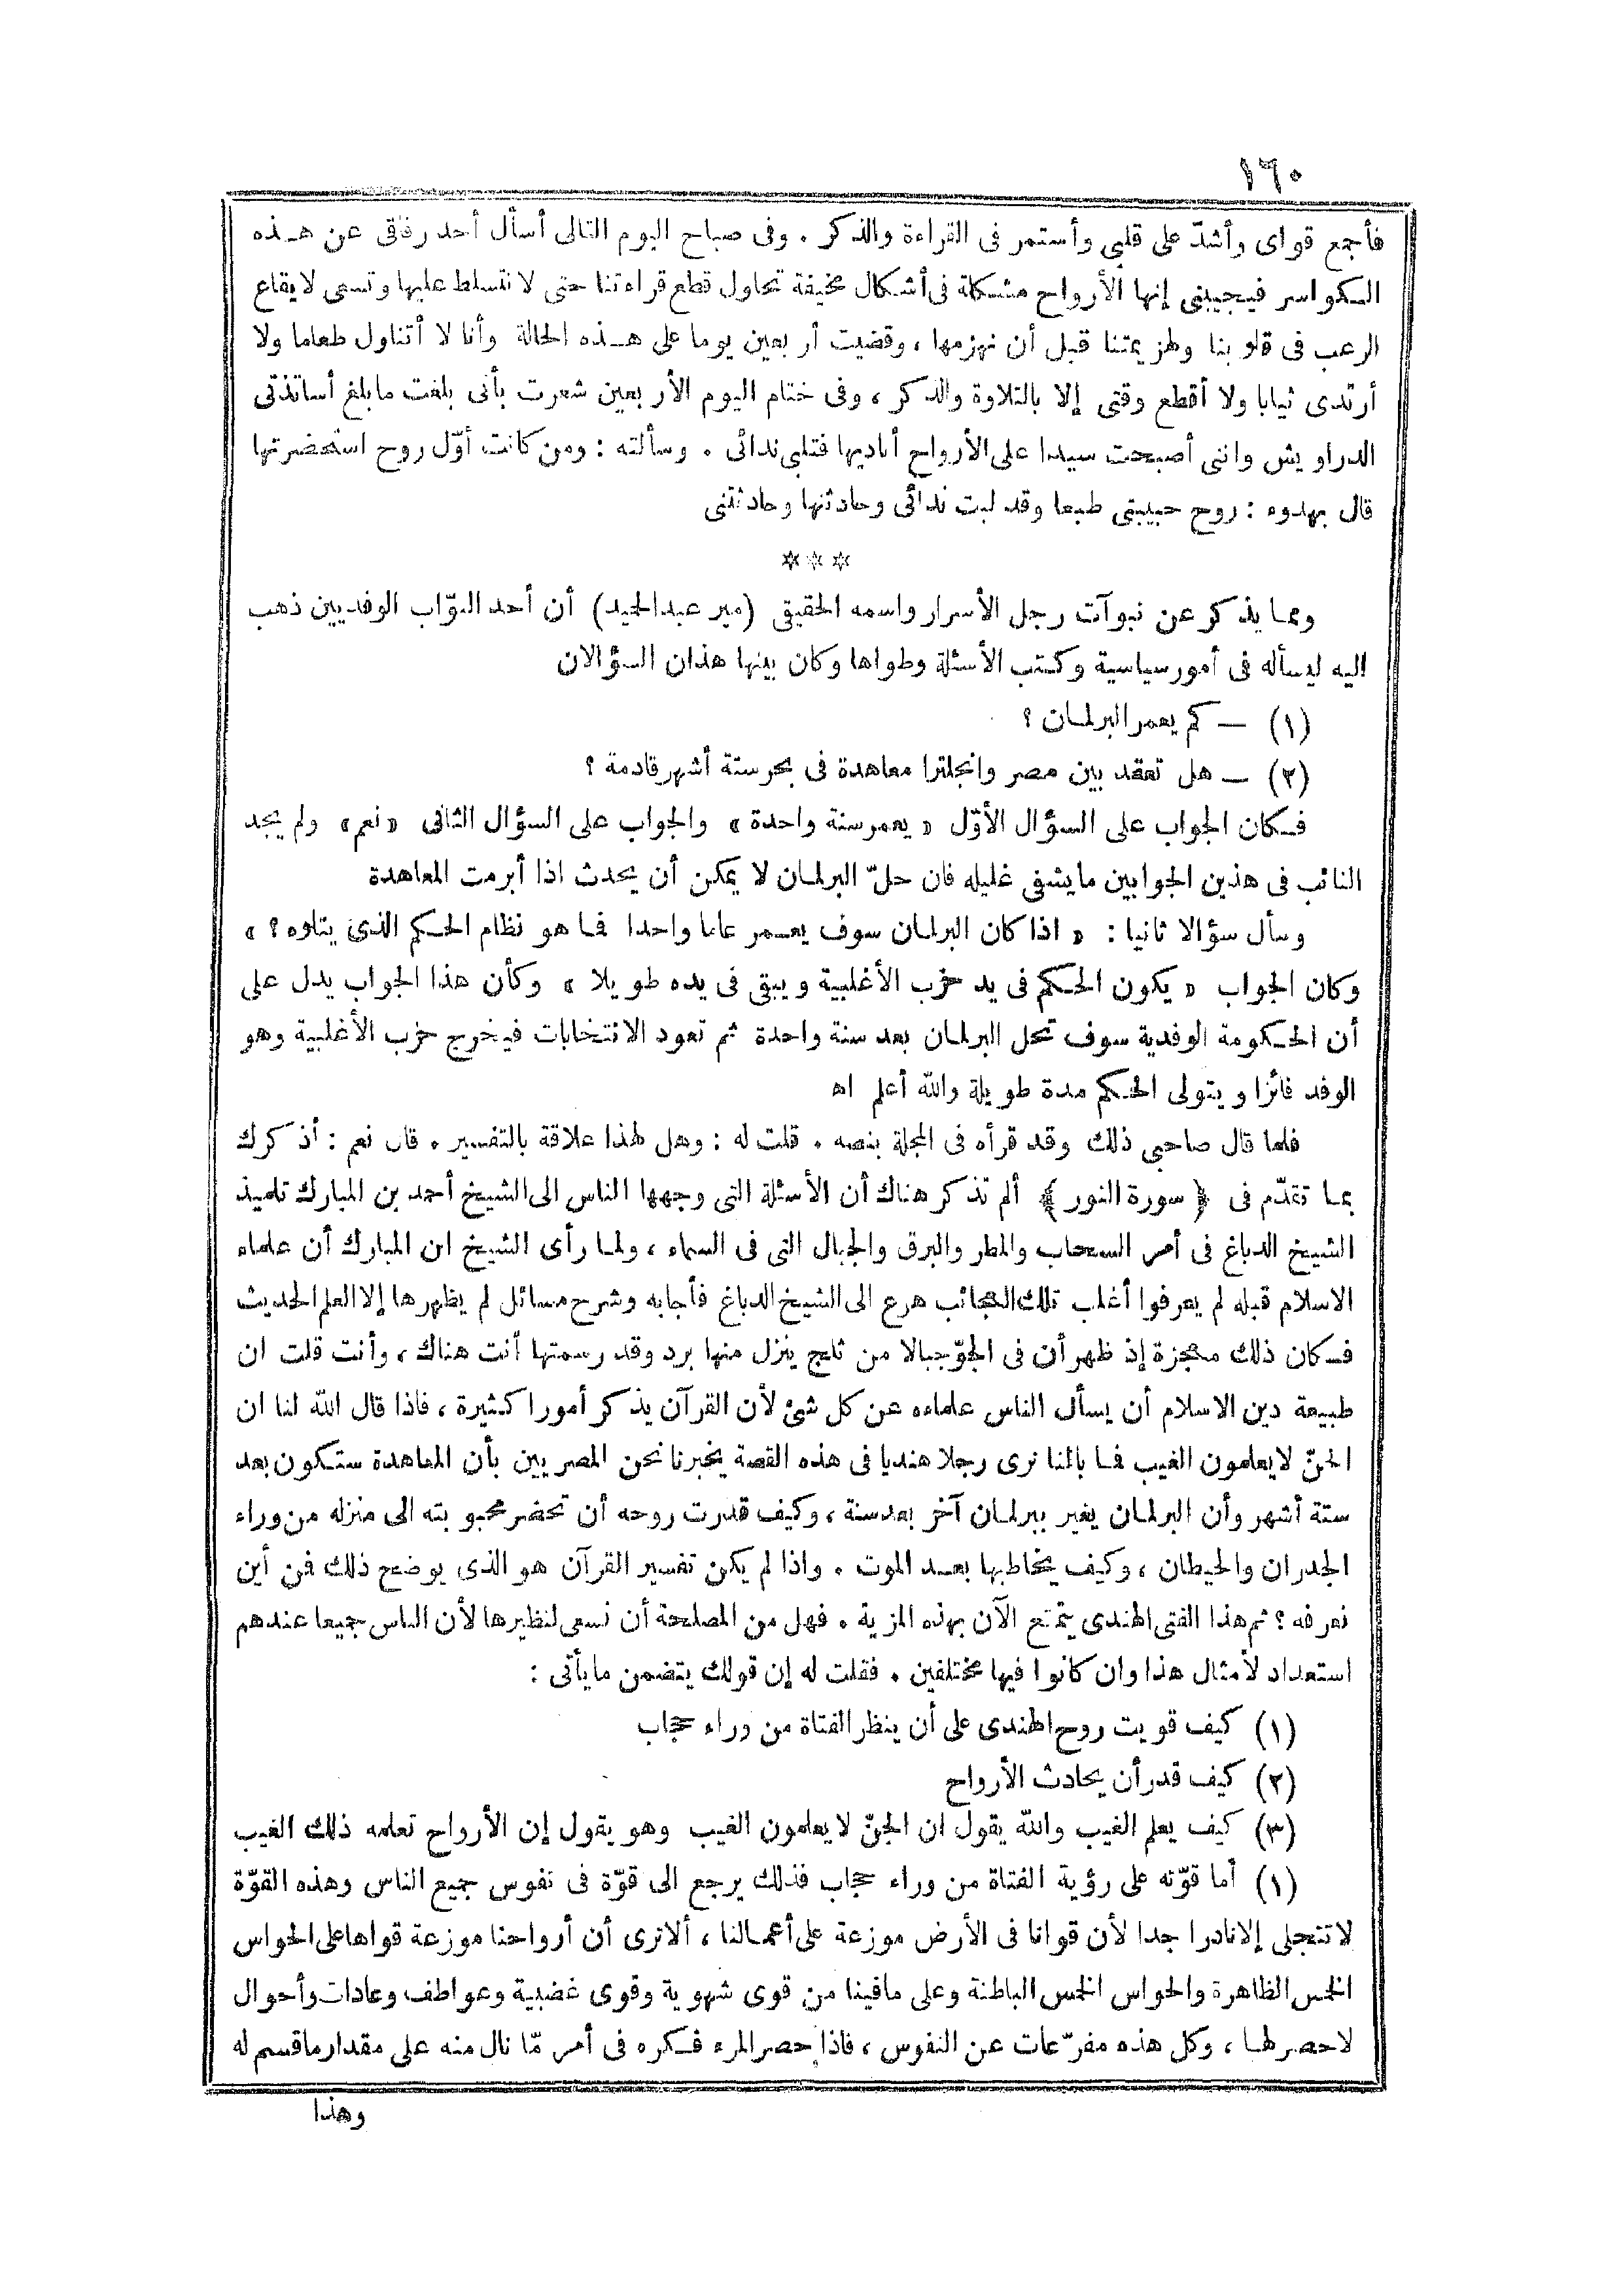 ١٦٠
فأجمع قواى وأشدّ على قلبى وأستمر فى القراءة والذكر . وفى صباح اليوم التالى أسأل أحد رفاقى عن هـذه
الكواسر فيجيبنى إنها الأرواح متشكلة فى أشكال مخيفة تحاول قطع قراءتنا حتى لا نتسلط عليها وتسعى لايقاع
الرعب فى قلوبنا ولهزيمتنا قبل أن نهزمها ، وقضيت أربعين يوما على هـذه الحالة وأنا لا أتناول طعاما ولا
أرتدى ثيابا ولا أقطع وقتى إلا بالتلاوة والذكر ، وفى ختام اليوم الأربعين شعرت بأنى بلغت مابلغ أساتذتى
الدراويش واننى أصبحت سيدا على الأرواح أناديها فتلبى ندائى . وسألته : ومن كانت أوّل روح استحضرتها
قال بهدوء : روح حبيبتى طبعا وقد لبت ندائى وحادثتها وحادثتنى
* * *
ومما يذكر عن نبوآت رجل الأسرار واسمه الحقيقى (مير عبدالحميد) أن أحد النوّاب الوفديين ذهب
اليه ليسأله فى أمور سياسية وكتب الأسئلة وطواها وكان بينها هذان السؤالان
(١) — كم يعمر البرلمـان ؟
(٢) — هل تعقد بين مصر وانجلترا معاهدة فى بحر ستة أشهر قادمة ؟
فكان الجواب على السؤال الأوّل « يعمر سنة واحدة » والجواب على السؤال الثانى «نعم» ولم يجد
النائب فى هذين الجوابين مايشفى غليله فان حلّ البرلمـان لا يمكن أن يحدث اذا أبرمت المعاهدة
وسأل سؤالا ثانيا : « اذا كان البرلمـان سوف يعـمر عاما واحدا فمـا هو نظام الحـكم الذى يتلوه ؟ »
وكان الجواب « يكون الحـكم فى يد حزب الأغلبية ويبقى فى يده طويلا » وكأن هذا الجواب يدل على
أن الحـكومة الوفدية سوف تحل البرلمـان بعد سنة واحدة ثم تعود الانتخابات فيخرج حزب الأغلبية وهو
الوفد فائزا ويتولى الحـكم مدة طويلة والله أعلم اه
فلما قال صاحبى ذلك وقد قرأه فى المجلة بنصه . قلت له : وهل لهذا علاقة بالتفسير . قال نعم : أذكرك
بمـا تقدّم فى ﴿ سورة النور ﴾ ألم تذكر هناك أن الأسئلة التى وجهها الناس الى الشيخ أحمد بن المبارك تلميذ
الشيخ الدباغ فى أمر السحاب والمطر والبرق والجبال التى فى السماء ، ولمـا رأى الشيخ ابن المبارك أن علماء
الاسلام قبله لم يعرفوا أغلب تلك العجائب هرع الى الشيخ الدباغ فأجابه وشرح مسائل لم يظهرها إلا العلم الحديث
فـكان ذلك معجزة إذ ظهر أن فى الجوّ جبالا من ثلج ينزل منها برد وقد رسمتها أنت هناك ، وأنت قلت ان
طبيعة دين الاسلام أن يسأل الناس علماءه عن كل شئ لأن القرآن يذكر أمورا كثيرة ، فاذا قال الله لنا ان
الجنّ لايعلمون الغيب فمـا بالنا نرى رجلا هنديا فى هذه القصة يخبرنا نحن المصريين بأن المعاهدة ستـكون بعد
ستة أشهر وأن البرلمـان يغير ببرلمـان آخر بعد سنة ، وكيف قدرت روحه أن تحضر محبوبته الى منزله من وراء
الجدران والحيطان ، وكيف يخاطبها بعـد الموت . واذا لم يكن تفسير القرآن هو الذى يوضح ذلك فمن أين
نعرفه ؟ ثم هذا الفتى الهندى يتمتع الآن بهذه المزية . فهل من المصلحة أن نسعى لنظيرها لأن الناس جميعا عندهم
استعداد لأمثال هذا وان كانوا فيها مختلفين . فقلت له إن قولك يتضمن مايأتى :
(١) كيف قويت روح الهندى على أن ينظر الفتاة من وراء حجاب
(٢) كيف قدر أن يحادث الأرواح
(٣) كيف يعلم الغيب والله يقول ان الجنّ لايعلمون الغيب وهو يقول إن الأرواح تعلمه ذلك الغيب
(١) أما قوّته على رؤية الفتاة من وراء حجاب فذلك يرجع الى قوّة فى نفوس جميع الناس وهذه القوّة
لا تتجلى إلا نادرا جدا لأن قوانا فى الأرض موزعة على أعمـالنا ، ألا ترى أن أرواحنا موزعة قواها على الحواس
الخمس الظاهرة والحواس الخمس الباطنة وعلى مافينا من قوى شهوية وقوى غضبية وعواطف وعادات وأحوال
لاحصر لهـا ، وكل هذه مفرّعات عن النفوس ، فاذا حصر المرء فـكره فى أمر مّا نال منه على مقدار ماقسم له
وهذا